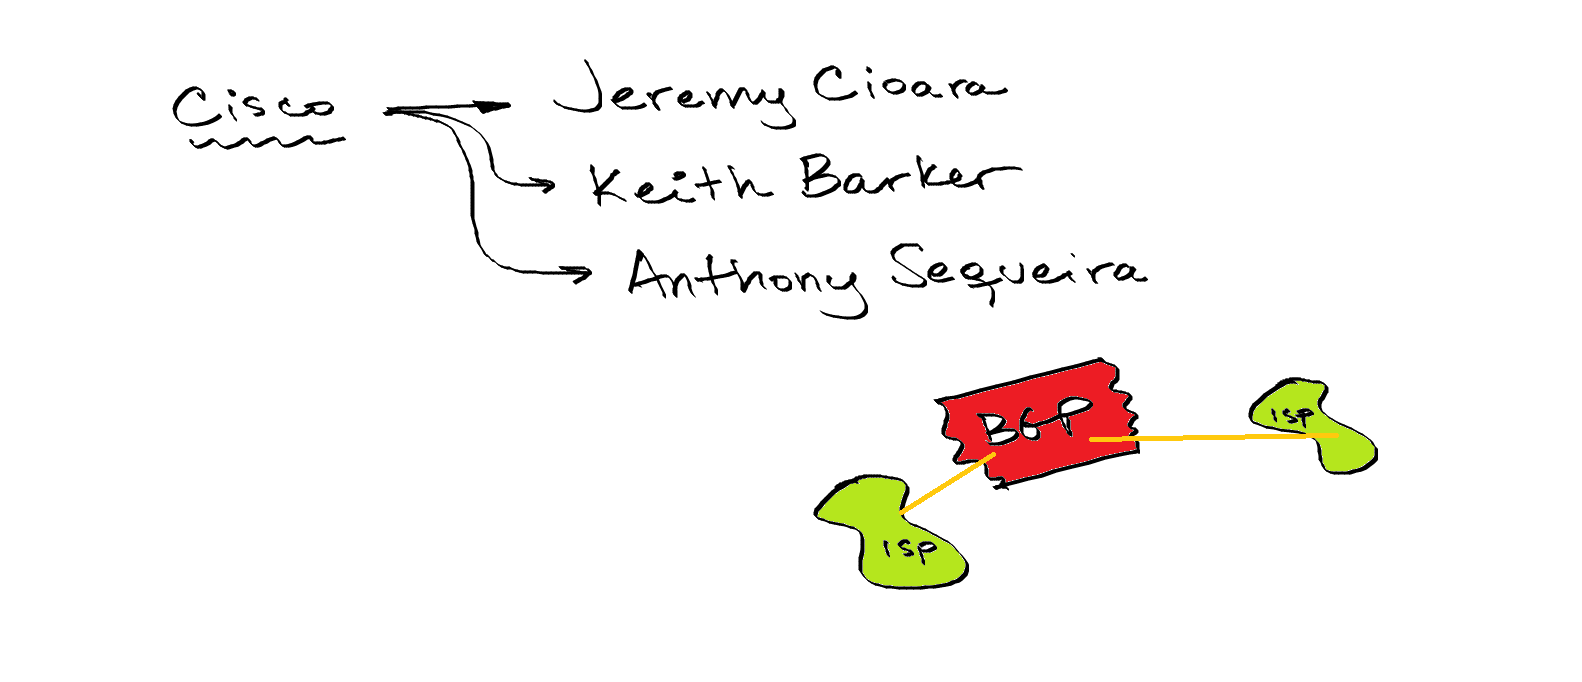 Cisco
Jeremy Cioara
Keith Barker
Anthony Sequeira
BGP
ISP
ISP